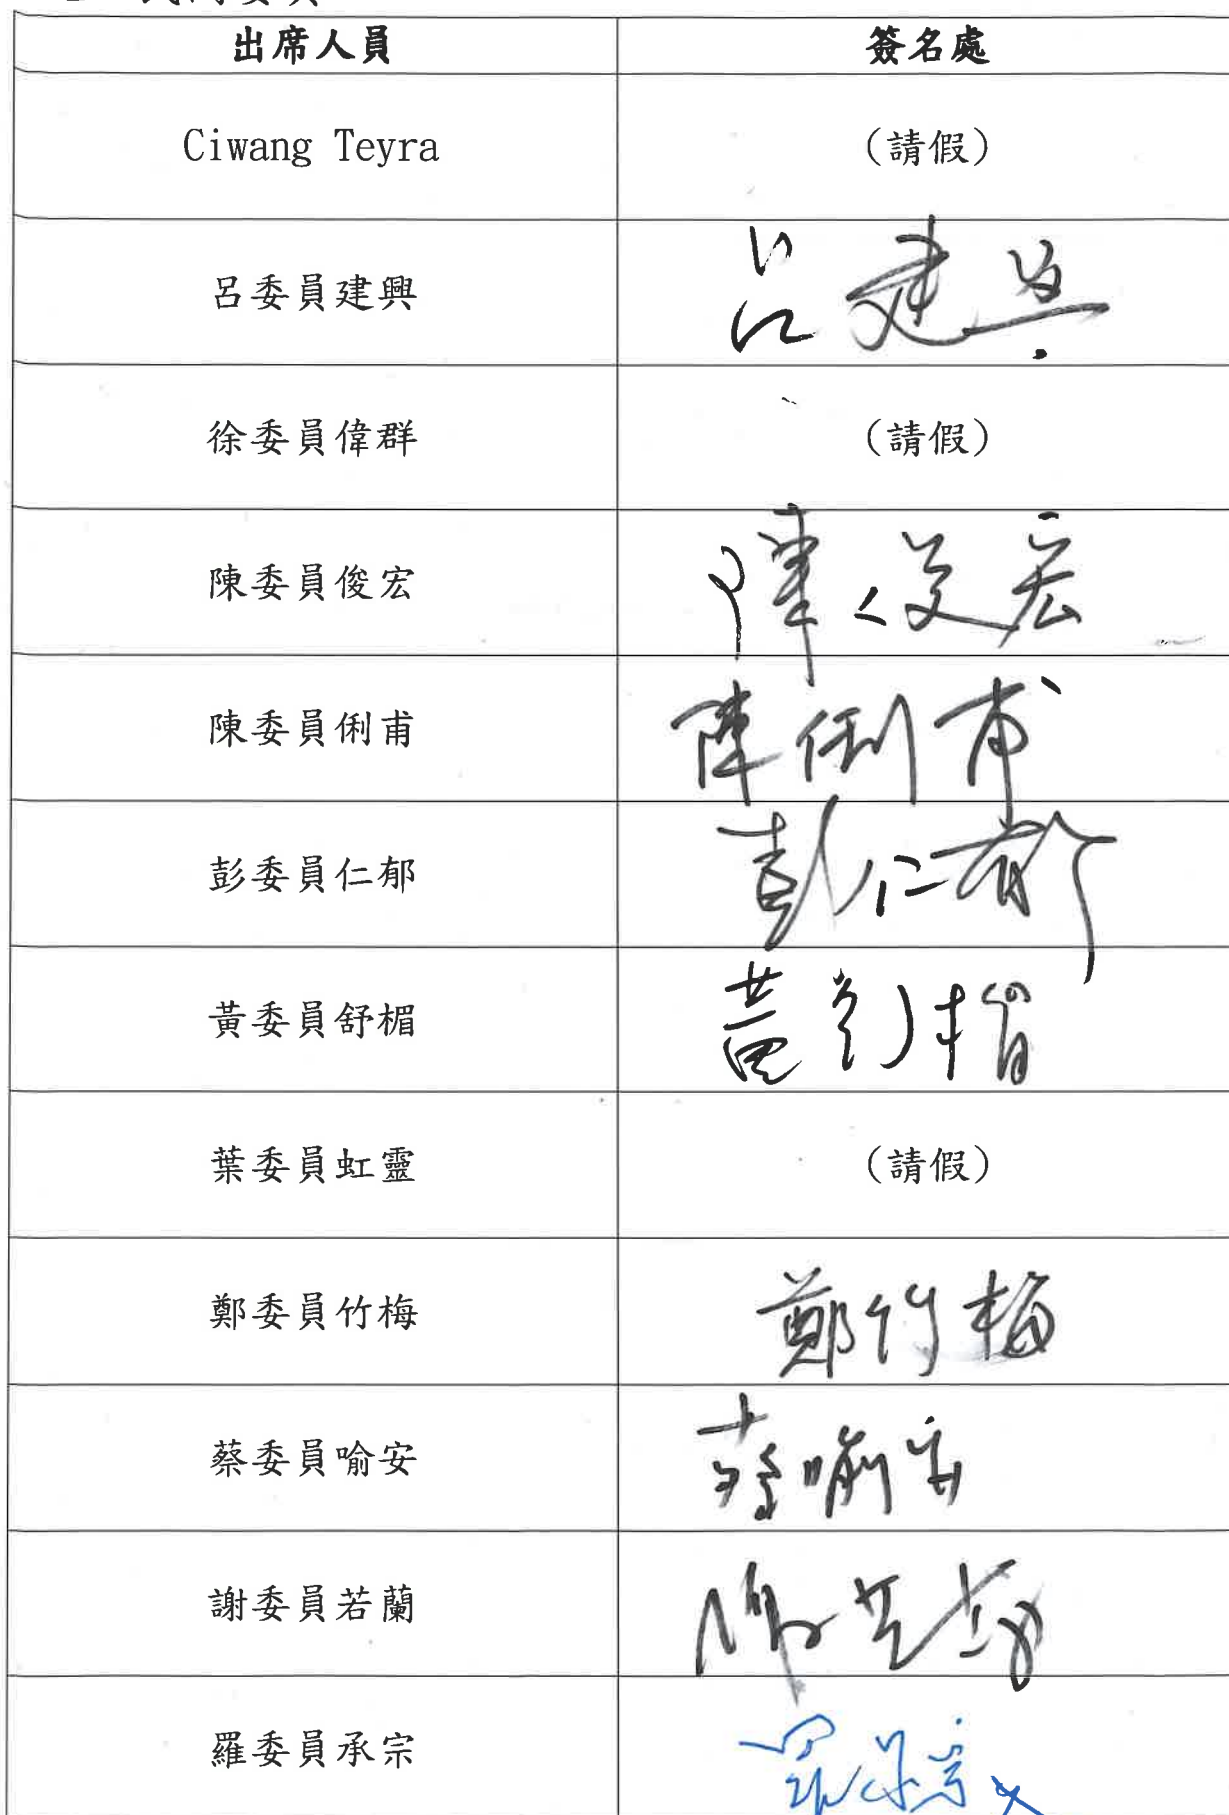 出席人員 簽名處
Ciwang Teyra (請假)
呂委員建興 呂建興
徐委員偉群 (請假)
陳委員俊宏 陳俊宏
陳委員俐甫 陳俐甫
彭委員仁郁 彭仁郁
黃委員舒楣 黃舒楣
葉委員虹靈 (請假)
鄭委員竹梅 鄭竹梅
蔡委員喻安 蔡喻安
謝委員若蘭 謝若蘭
羅委員承宗 羅承宗